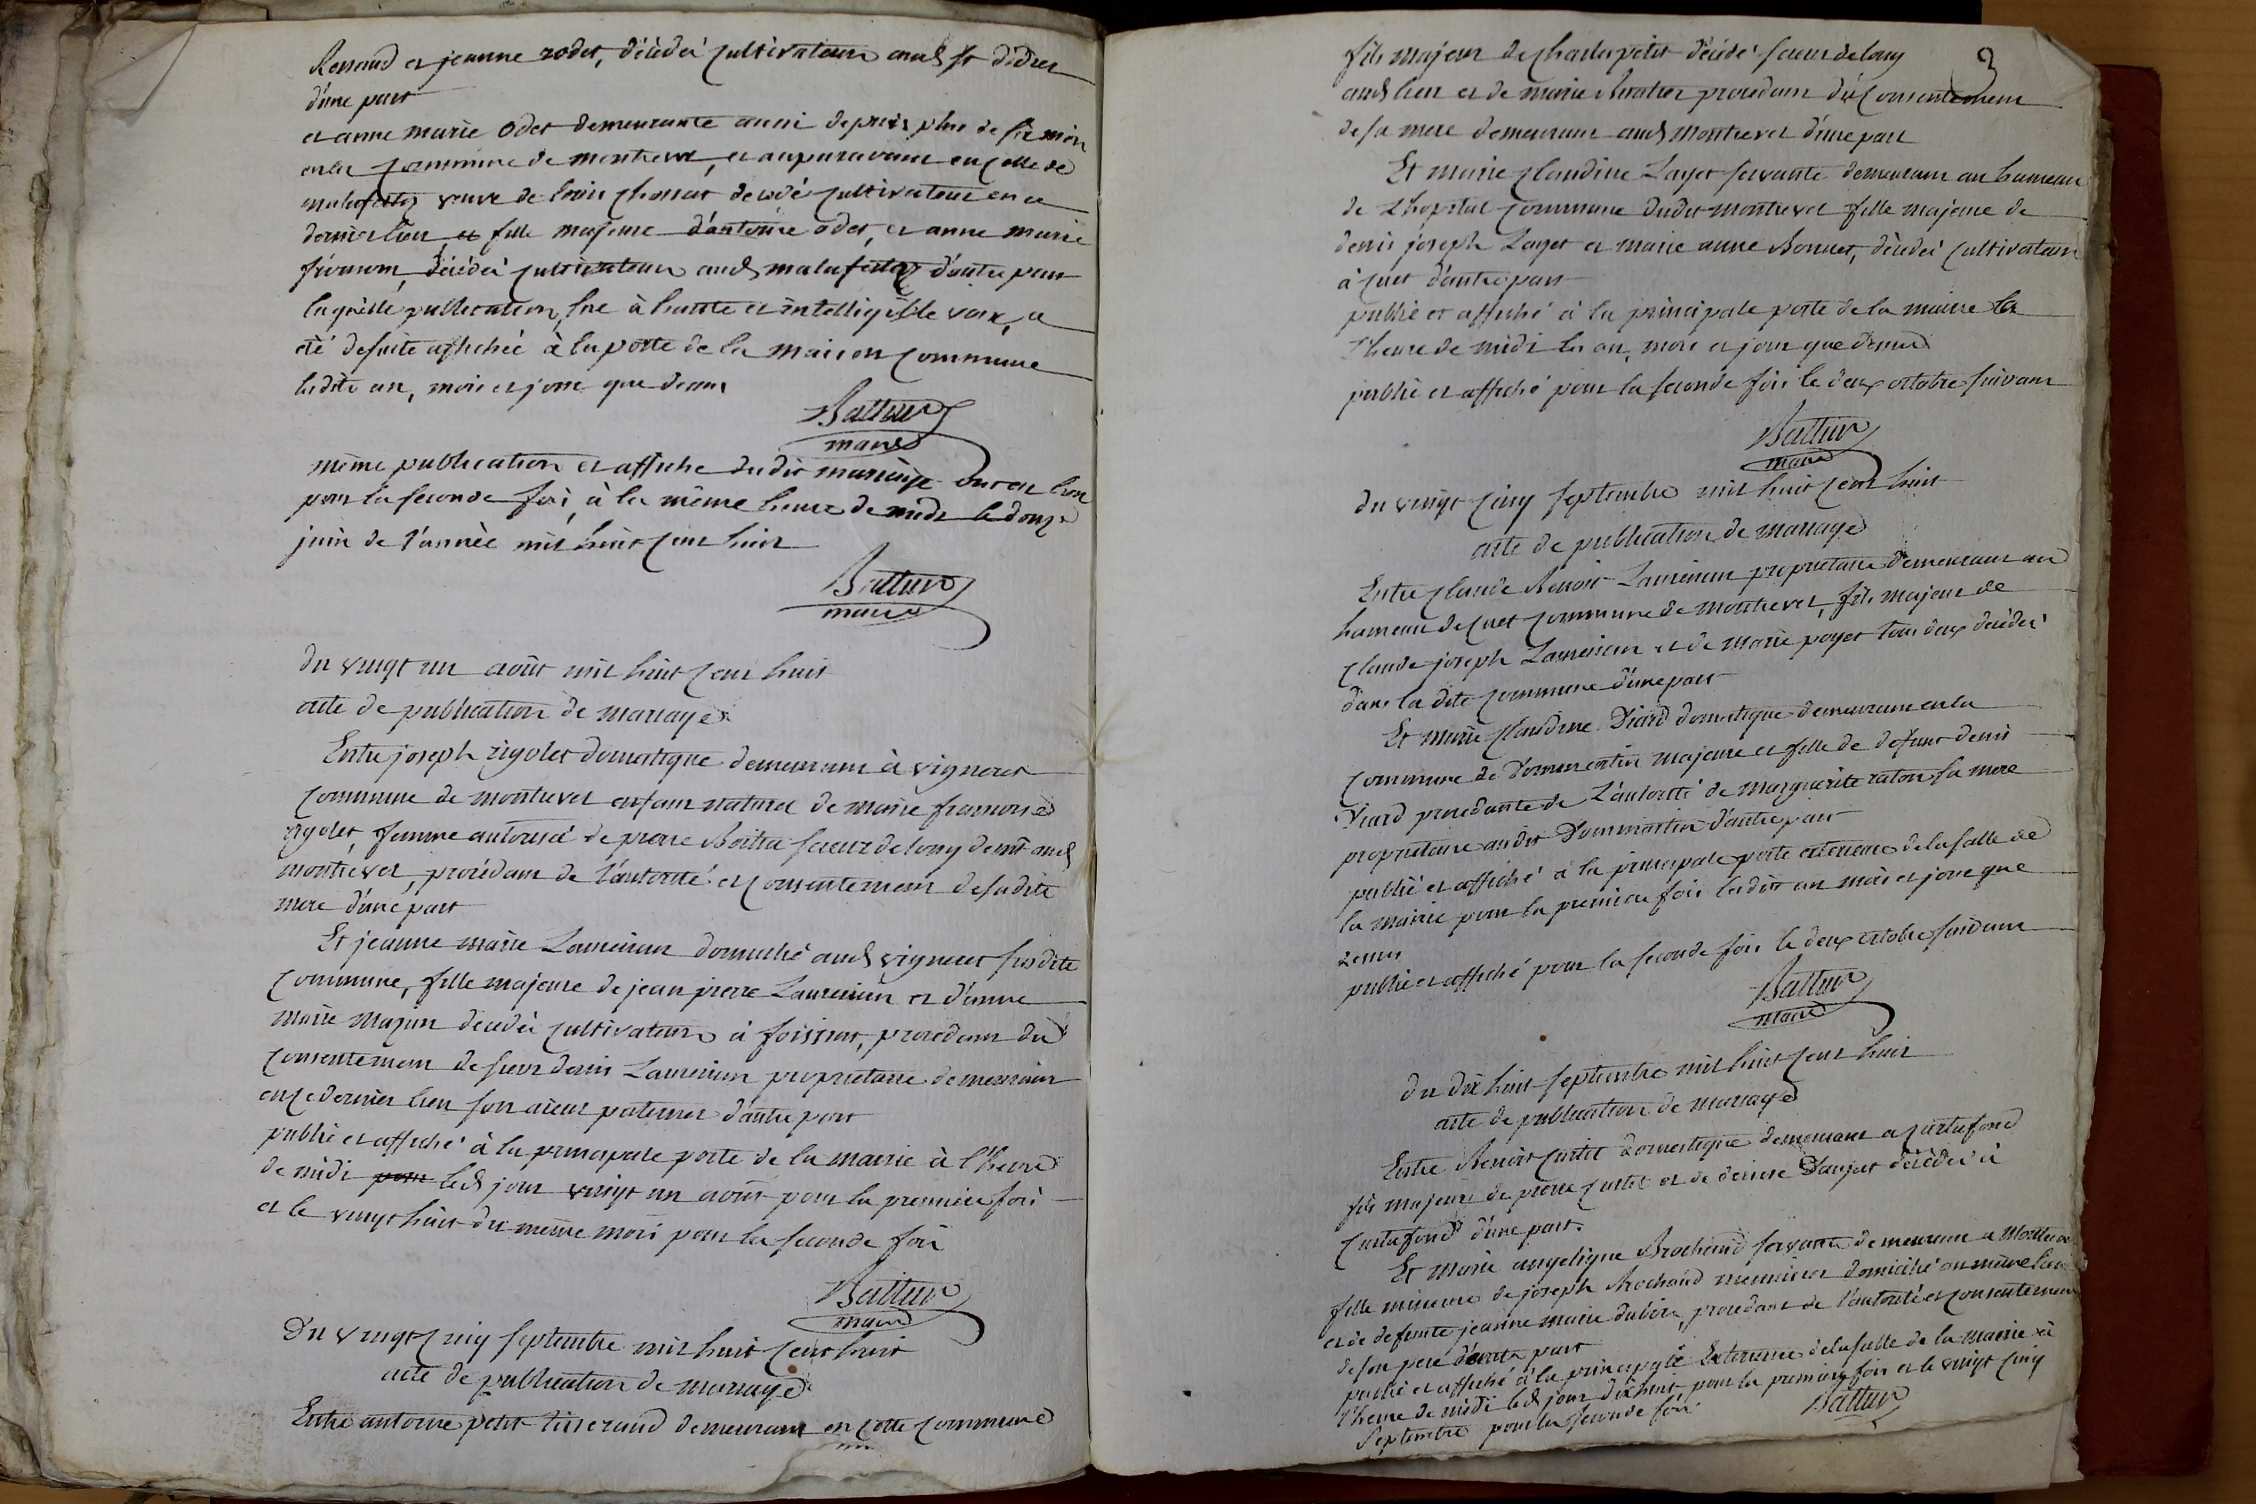 Renaud et jeanne rodet, décédés cultivateurs aud. st didier
d'une part
et anne marie odet demeurante aussi depuis plus de six mois
en la commune de montrevel, et auparavant en celle de
malafretaz veuve de louis chossat decedé cultivateur en ce
dernier lieu, et fille majeure d'antoine odet, et anne marie
décédés cultivateurs aud. malafretaz d'autre part
laquelle publication, lue à haute et intelligible voix, a
été desuite affichée à la porte de la maison commune
lesdits an, mois et jour que dessus
Battur
maire
même publication et affiche dudit mariage ont eu lieu
pour la seconde fois, à la même heure de midi le douze
juin de l'année mil huit cent huit
Battur
maire
du vingt un août mil huit cent huit
acte de publication de mariage
Entre joseph rigolet domestique demeurant à vigneret
commune de montrevel enfant naturel de marie françoise
rigolet, femme autorisée de pierre scieur de long demt aud.
montrevel, procédant de l'autorité et consentement de sadite
mere d'une part
Et jeanne marie Laurencin domicilié aud. vigneret susdite
commune, fille majeure de jean pierre Laurencin et d'anne
marie decedés cultivateurs à foissiat, procedant du
consentement de sieur denis Laurencin proprietaire demeurant
en ce dernier lieu son aieul paternel d'autre part
publié et affiché à la principale porte de la mairie à l'heure
de midi pour led. jour vingt un août pour la premiere fois
et le vingt huit du même mois pour la seconde fois
Battur
maire
Du vingt cinq septembre mil huit cent huit
acte de publication de mariage
Entre antoine petit tisserand demeurant en cette commune
fils majeur de charles petit décédé scieur de long
aud. lieu et de marie procedant du consentement
de sa mere demeurant aud. montrevel d'une part
Et marie claudine Layet servante demeurant au hameau
de L'hopital commune dudit montrevel fille majeure de
denis joseph Layet et marie anne Bonnet, décédés cultivateurs
à cuet d'autre part
publié et affiché à la principale porte de la mairie à
l'heure de midi les an, mois et jour que dessus
publié et affiché pour la seconde fois le deux octobre suivant
Battur
maire
du vingt cinq septembre mil huit cent huit
acte de publication de mariage
Entre claude Benoit Laurencin proprietaire demeurant au
hameau de cuet commune de montrevel, fils majeur de
claude joseph Laurencin et de marie poyet tous deux décédés
dans la dite commune d'une part
Et marie claudine Viard domestique demeurant en la
commune de Dommartin majeure et fille de defunt denis
Viard procedante de L'autorité de marguerite raton sa mere
proprietaire audit Dommartin d'autre part
publié et affiché à la principale porte exterieure de la salle de
la mairie pour la premiere fois lesdits an mois et jour que
dessus
publié et affiché pour la seconde fois le deux octobre suivant
Battur
maire
du dix huit septembre mil huit cent huit
acte de publication de mariage
Entre Benoit curtil domestique demeurant a curtafond
fils majeur de pierre curtil et de denise Daujat décédés à
curtafond d'une part.
Et marie angelique Brochand servante demeurant a Montrevel
fille mineure de joseph Brochand menuisier domicilié au même lieu
et de defunte jeanne marie dubois, procedant de l'autorité et consentement
de son pere d'autre part
publié et affiché à la principale Exterieure de la salle de la mairie à
l'heure de midi led. jour dix huit pour la premiere fois et le vingt cinq
septembre pour la seconde fois
Battur